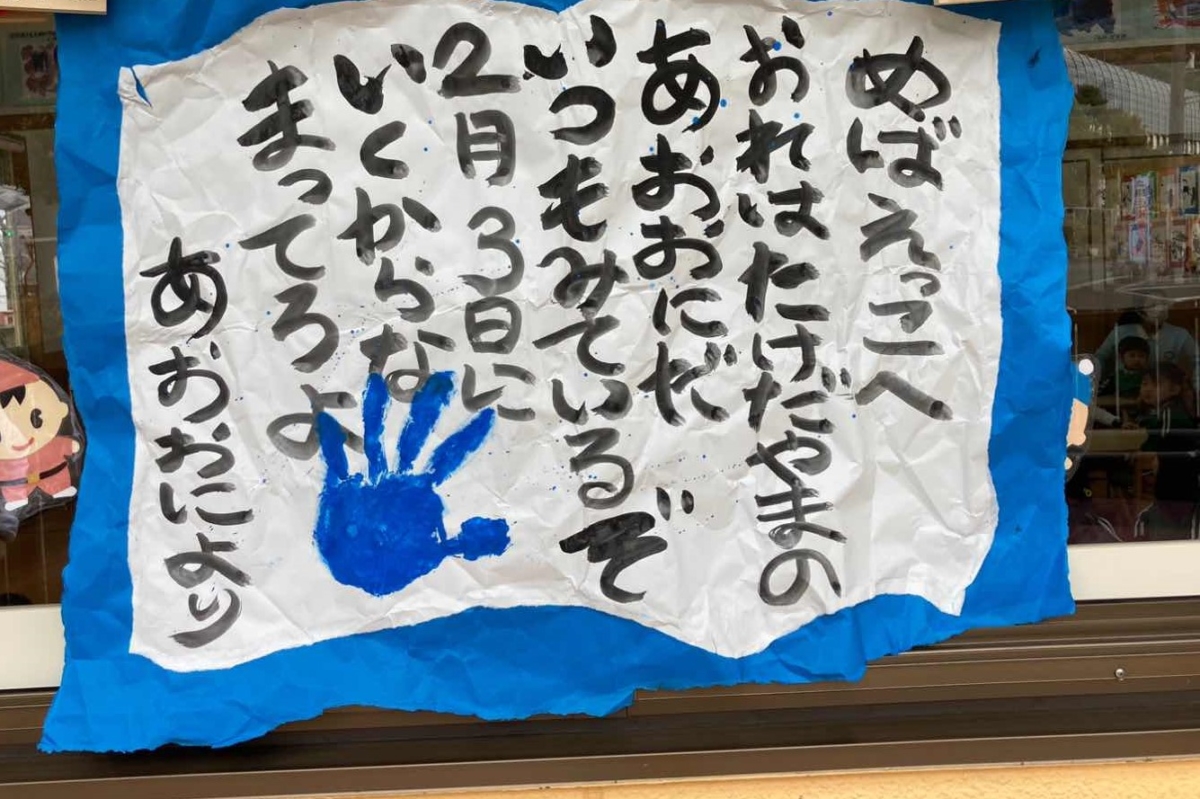 めばえっこへ
おれはたけだやまの
あおおにだ
いつもみているぞ
2月3日に
いくからな
まってろよ
あおおにより